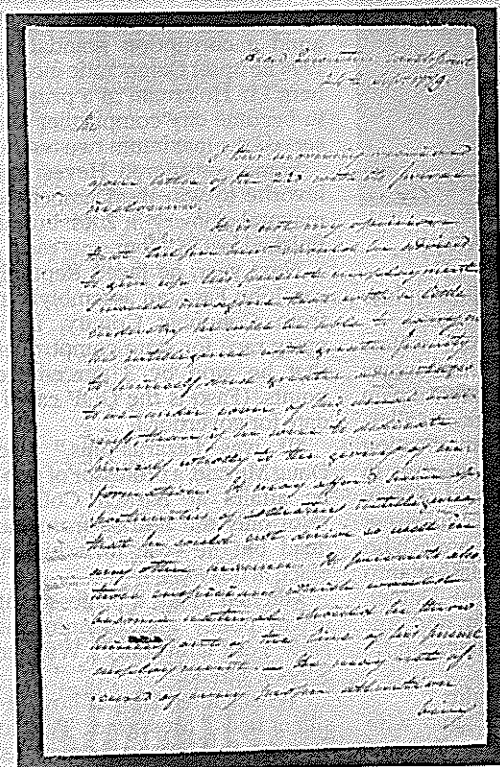 Head Quarters West Point
24th Sept. 1779
Sir
I this morning received
your letter of the 21st with its
inclosures.
It is not my opinion
that Culper Junr should be advised
to give up his present employment
I would imagine that with a little
industry he will be able to carry on
his intelligence with greater security
to himself and greater advantages
to us under cover of his usual busi-
ness, than if he were to dedicate
himself wholly to the giving of in-
formation. It may afford him op-
portunities of collecting intelligence
that he could not derive so well in
any other manner. It prevents also
those suspicions which would
become natural should he throw
himself out of the line of his present
employment. He may rest as-
sured of every proper attention
being